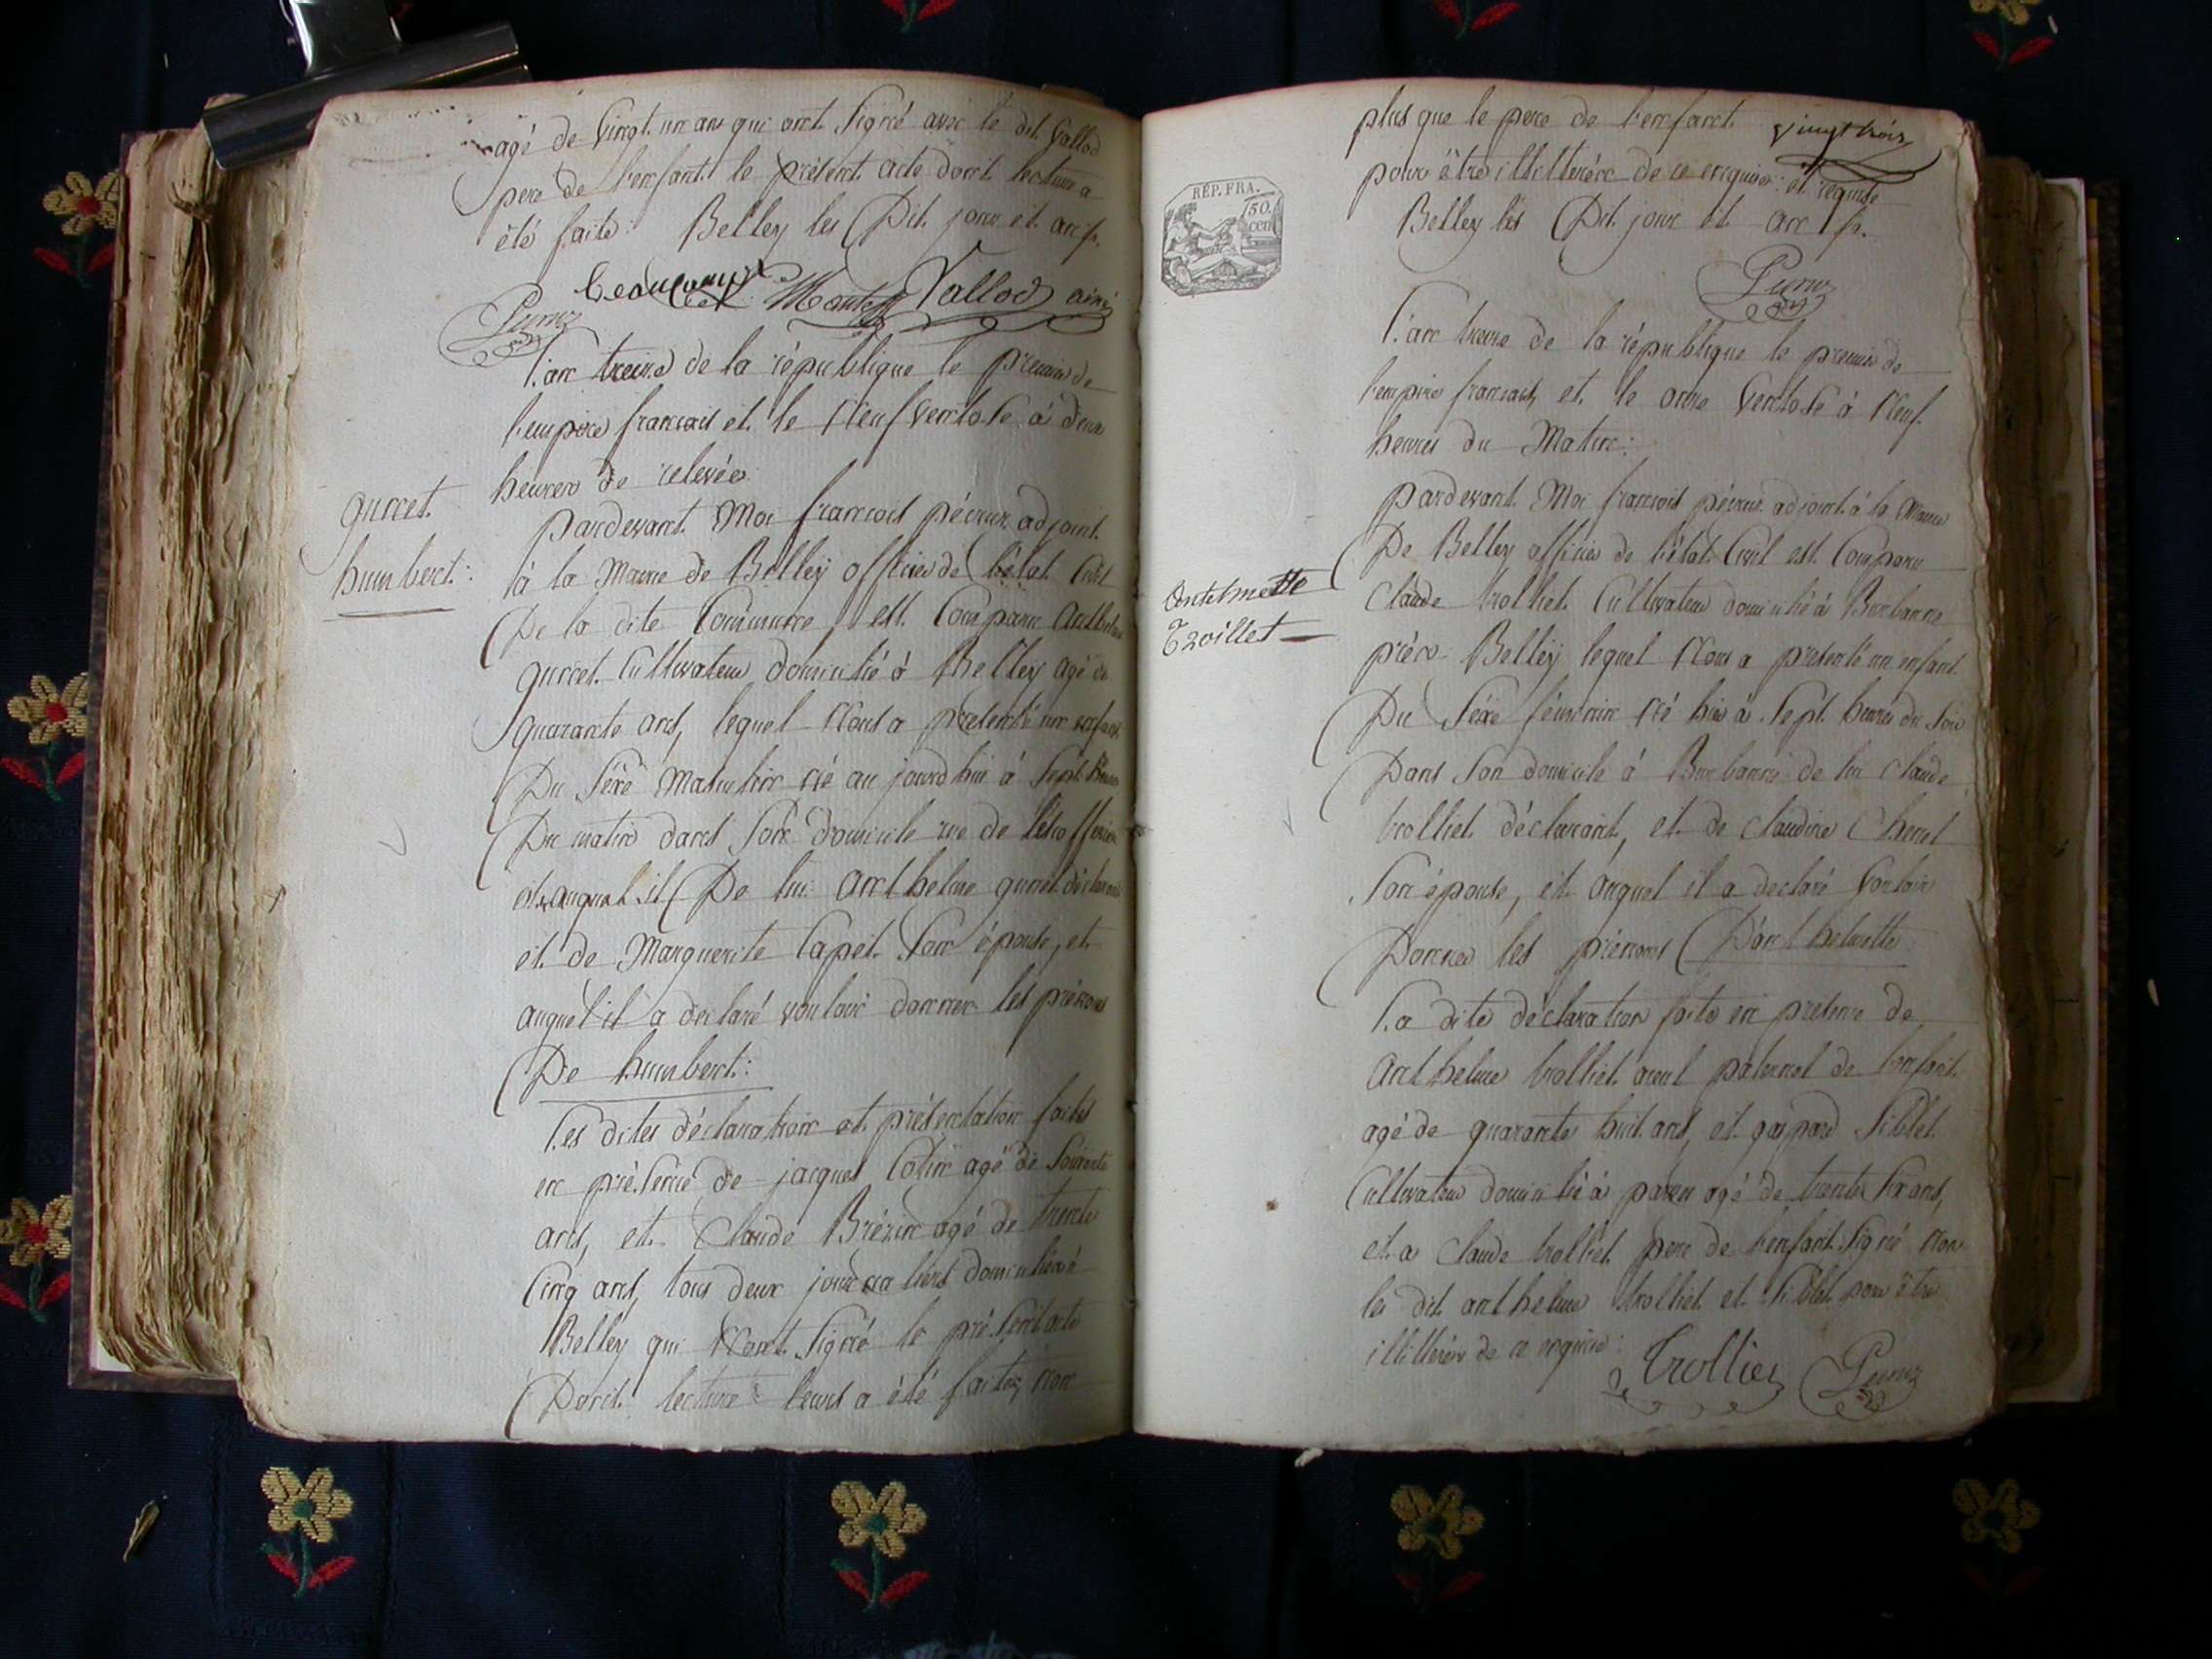 agé de vingt un ans qui ont signé avec le dit Vallod
pere de l'enfant le présent acte dont lecture a
été faite. Belley les dit jour et an
Vallod ainé
l'an treize de la république le premier de
l'empire francais et le neuf ventose à deux
heures de relevée
gurret
humbert:
pardevant Moi francois pécrux adjoint
à la Mairie de Belley officier de l'état Civil
De la dite Commune, est Comparu Anthelme
gurret Cultivateur domicilié à Belley agé de
quarante ans, lequel Nous a présenté un enfant
Du séxe Masculin né au jourd'hui à sept heures
Du matin dans son domicile rue de
et auquel il De lui Anthelme gurret déclarant
et de Marguerite Capet son épouse, et
auquel il a declaré vouloir donner les prénoms
De humbert:
les dites déclaration et présentation faites
en présence de jacques Cotin agé de soixante
ans, et Claude Brézin agé de trente
Cinq ans, tous deux journaliers domiciliés à
Belley qui N'ont signé le présent acte
Dont lecture leurs a été faite, non
plus que le pere de l'enfant vingt trois
pour être illitterére de ce enquis et requis
Belley les Dit jour et an
RÉP. FRA.
50.
cen
l'an treize de la république le premier de
l'empire francais, et le onze ventose à neuf
heures du Matin:
pardevant Moi francois pécrux adjoint à la Mairie
De Belley officier de l'état Civil est Comparu
Antelmette
Trolliet
Claude trolliet Cultivateur domicilié à Burbanne
près Belley lequel Nous a presenté un enfant
Du Séxe féminin né hier à sept heures du soir
Dans son domicile à Burbanne de lui claude
trolliet déclarant, et de claudine
son épouse, et auquel il a declaré vouloir
Donner les prénoms D'anthelmette
la dite déclaration faite en présence de
Anthelme trolliet aieul paternel de l'enfant
agé de quarante huit ans, et gaspard Siblet
Cultivateur domicilié à agé de trente six ans,
et a claude trolliet pere de l'enfant signé non
les dit anthelme trolliet et Siblet pour être
illitterés de ce enquis:
trollier